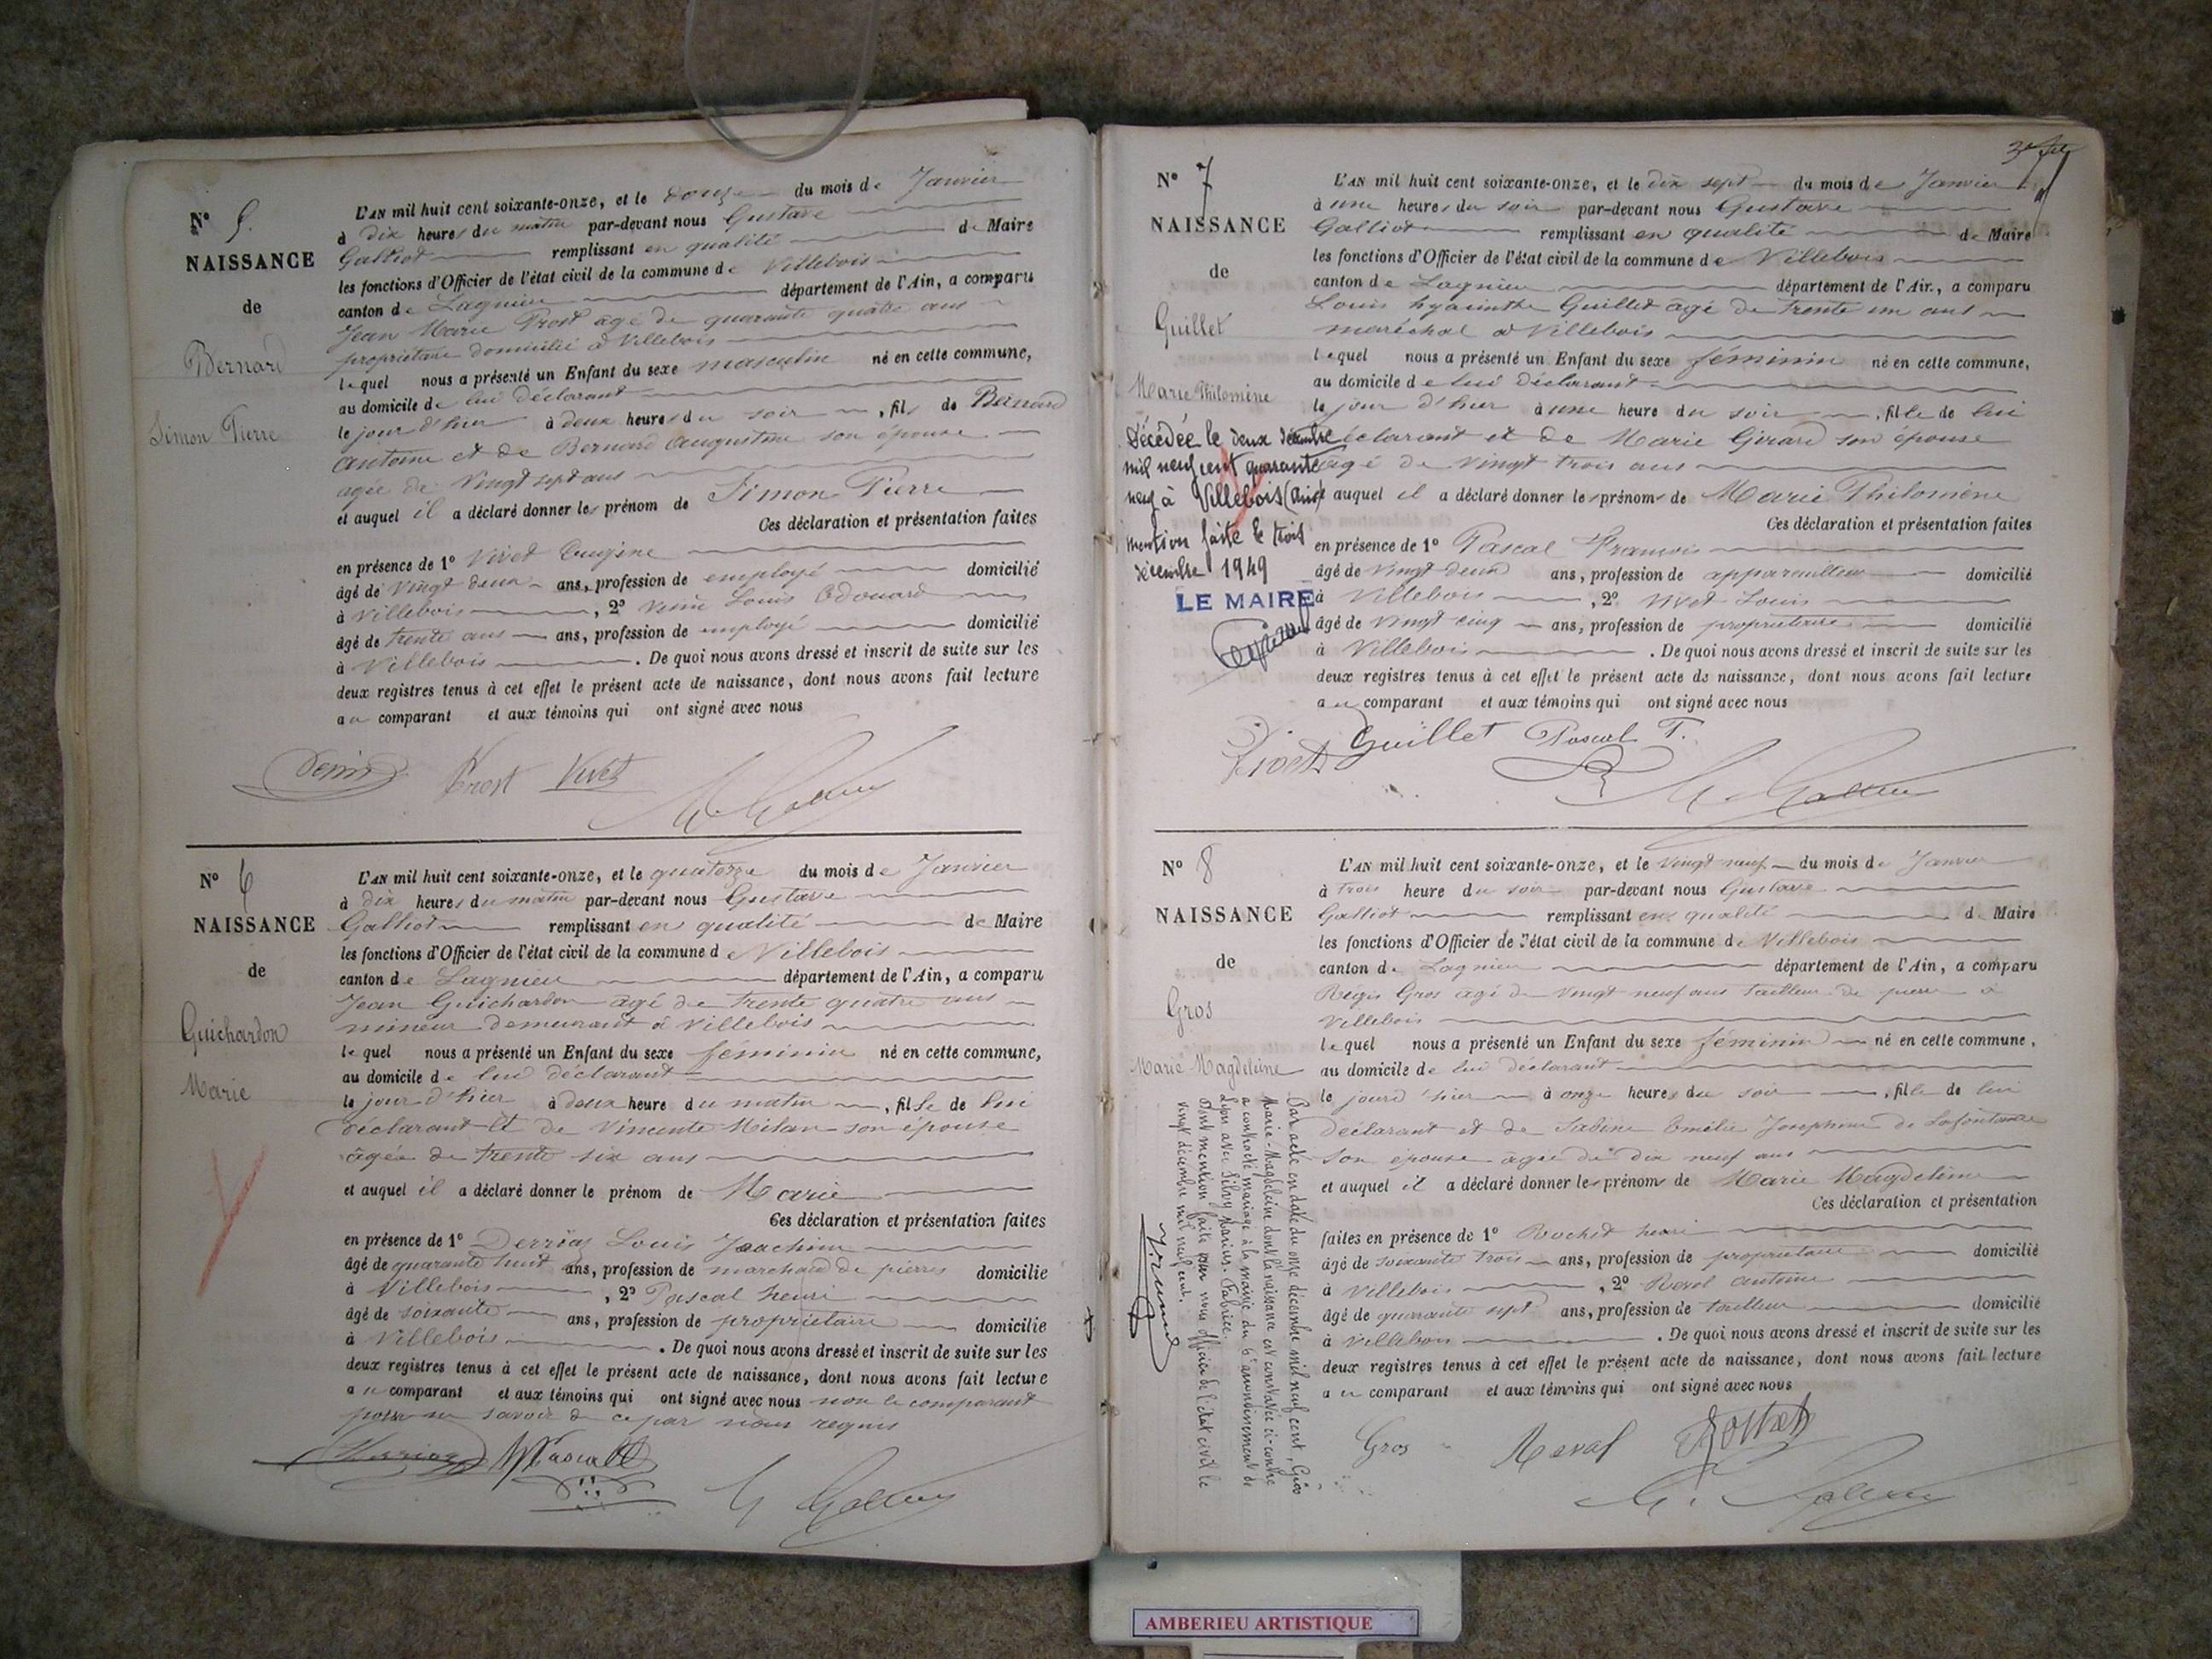 N° 5.
NAISSANCE
de
Bernard
Simon Pierre
L'AN mil huit cent soixante-onze, et le douze du mois de Janvier
à dix heures du matin par-devant nous Gustave
Galliot remplissant en qualité de Maire
les fonctions d'Officier de l'état civil de la commune de Villebois
canton de Lagnieu département de l'Ain, a comparu
Jean Marie Prost âgé de quarante quatre ans
propriétaire domicilié à Villebois
lequel nous a présenté un Enfant du sexe masculin né en cette commune,
au domicile de lui déclarant
le jour d'hier à deux heures du soir, fils de Bernard
Antoine et de Bernard Augustine son épouse
agée de Vingt sept ans
et auquel il a déclaré donner les prénom de Simon Pierre
Ces déclaration et présentation faites
en présence de 1° Vivet Eugène
âgé de Vingt deux ans, profession de employé domicilié
à Villebois, 2° Louis Edouard
âgé de trente ans ans, profession de employé domicilié
à Villebois. De quoi nous avons dressé et inscrit de suite sur les
deux registres tenus à cet effet le présent acte de naissance, dont nous avons fait lecture
au comparant et aux témoins qui ont signé avec nous
Prost Vivet
N° 6
NAISSANCE
de
Guichardon
Marie
L'AN mil huit cent soixante-onze, et le quatorze du mois de Janvier
à dix heures du matin par-devant nous Gustave
Galliot remplissant en qualité de Maire
les fonctions d'Officier de l'état civil de la commune de Villebois
canton de Lagnieu département de l'Ain, a comparu
Jean Guichardon agé de trente quatre ans
mineur demeurant à Villebois
lequel nous a présenté un Enfant du sexe féminin né en cette commune,
au domicile de lui déclarant
le jour d'hier à deux heure du matin, fille de lui
déclarant et de Vincente Milan son épouse
âgée de trente six ans
et auquel il a déclaré donner le prénom de Marie
Ces déclaration et présentation faites
en présence de 1° Derriaz Louis Joachim
âgé de quarante huit ans, profession de marchand de pierres domicilié
à Villebois, 2° Pascal henri
âgé de soixante ans, profession de propriétaire domicilié
à Villebois. De quoi nous avons dressé et inscrit de suite sur les
deux registres tenus à cet effet le présent acte de naissance, dont nous avons fait lecture
au comparant et aux témoins qui ont signé avec nous non le comparant
pour ne savoir de ce par nous requis
Derriaz Pascal
N° 7
NAISSANCE
de
Guillet
Marie Philomène
Décédée le deux décembre
mil neuf cent quarante
neuf à Villebois (Ain)
mention faite le trois
décembre 1949
LE MAIRE
L'AN mil huit cent soixante-onze, et le dix sept du mois de Janvier
à une heures du soir par-devant nous Gustave
Galliot remplissant en qualité de Maire
les fonctions d'Officier de l'état civil de la commune de Villebois
canton de Lagnieu département de l'Ain, a comparu
Louis hyacinthe Guillet agé de trente un ans
maréchal à Villebois
lequel nous a présenté un Enfant du sexe féminin né en cette commune,
au domicile de lui déclarant
le jour d'hier à une heure du soir, fille de lui
déclarant et de Marie Girard son épouse
agé de vingt trois ans
et auquel il a déclaré donner les prénoms de Marie Philomène
Ces déclaration et présentation faites
en présence de 1° Pascal François
âgé de vingt deux ans, profession de appareilleur domicilié
à Villebois, 2° Vivet Louis
âgé de vingt cinq ans, profession de propriétaire domicilié
à Villebois. De quoi nous avons dressé et inscrit de suite sur les
deux registres tenus à cet effet le présent acte de naissance, dont nous avons fait lecture
au comparant et aux témoins qui ont signé avec nous
Vivet Guillet Pascal F.
N° 8
NAISSANCE
de
Gros
Marie Magdeleine
L'AN mil huit cent soixante-onze, et le vingt neuf du mois de Janvier
à trois heure du soir par-devant nous Gustave
Galliot remplissant en qualité de Maire
les fonctions d'Officier de l'état civil de la commune de Villebois
canton de Lagnieu département de l'Ain, a comparu
Régis Gros agé de vingt neuf ans tailleur de pierre à
Villebois
lequel nous a présenté un Enfant du sexe féminin né en cette commune,
au domicile de lui déclarant
le jourd'hier à onze heures du soir, fille de lui
déclarant et de Sabine Emélie Josephine de Lafontaine
son épouse agée de dix neuf ans
et auquel il a déclaré donner les prénoms de Marie Magdeleine
Ces déclaration et présentation
faites en présence de 1° Rochet henri
âgé de soixante trois ans, profession de propriétaire domicilié
à Villebois, 2° Revol antoine
âgé de quarante sept ans, profession de tailleur domicilié
à Villebois. De quoi nous avons dressé et inscrit de suite sur les
deux registres tenus à cet effet le présent acte de naissance, dont nous avons fait lecture
au comparant et aux témoins qui ont signé avec nous
Gros Reval Rochet
Par acte en date du onze décembre mil neuf cent, Gros
Marie-Magdeleine dont la naissance est constatée ci-contre
a contracté mariage à la mairie du 6e arrondissement de
Lyon avec Silvy Marius-Fabrice.
Dont mention faite par nous officier de l'état civil le
vingt décembre mil neuf cent.
AMBERIEU ARTISTIQUE